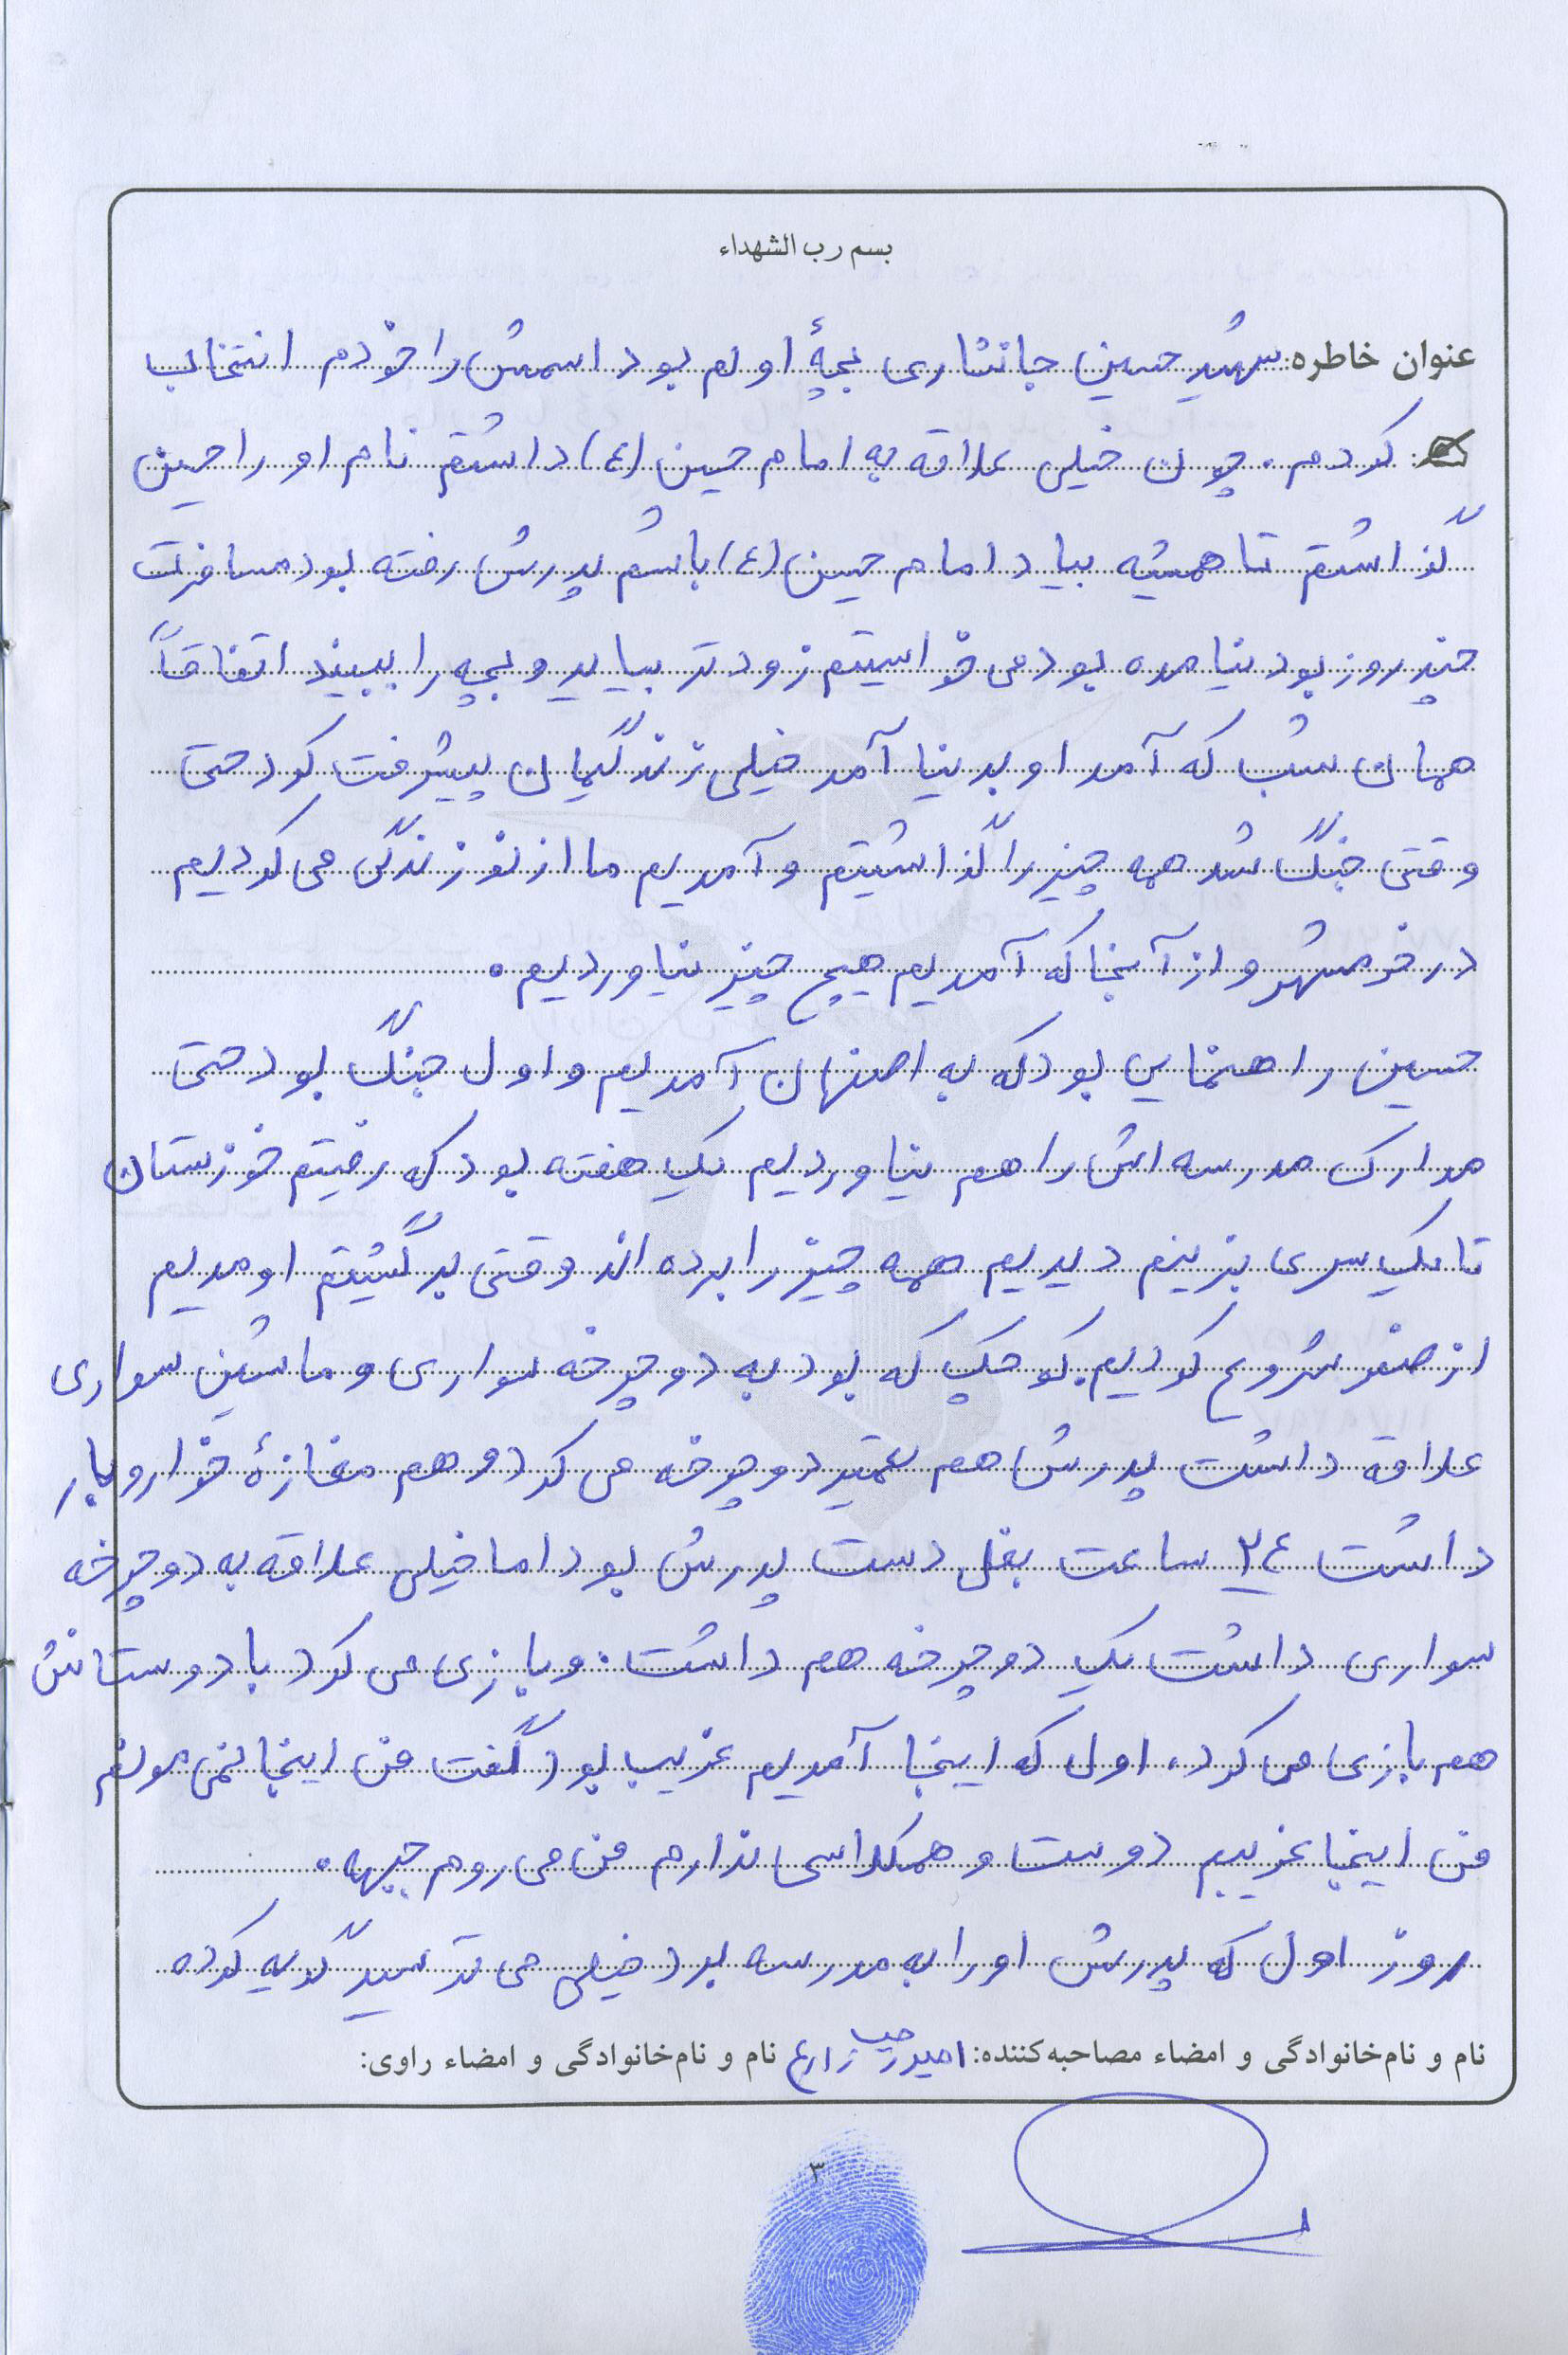 بسم رب الشهداء
عنوان خاطره: شهید حسین جانثاری بچهٔ اولم بود اسمش را خودم انتخاب
کردم. چون خیلی علاقه به امام حسین (ع) داشتم نام او را حسین
گذاشتم تا همیشه بیاد امام حسین (ع) باشم پدرش رفته بود مسافرت
چند روز بود نیامده بود می خواستیم زودتر بیاید و بچه را ببیند اتفاقاً
همان شب که آمد او بدنیا آمد خیلی زندگیمان پیشرفت کرد حتی
وقتی جنگ شد همه چیز را گذاشتیم و آمدیم ما از نو زندگی می کردیم
در خرمشهر و از آنجا که آمدیم هیچ چیز نیاوردیم.
حسین راهنمایی بود که به اصفهان آمدیم و اول جنگ بود حتی
مدارک مدرسه اش را هم نیاوردیم یک هفته بود که رفتیم خوزستان
تا یک سری بزنیم دیدیم همه چیز را برده اند وقتی برگشتیم اومدیم
از صفر شروع کردیم. کوچک که بود به دوچرخه سواری و ماشین سواری
علاقه داشت پدرش هم تعمیر دوچرخه می کرد و هم مغازهٔ خواروبار
داشت ۲۴ ساعت بغل دست پدرش بود اما خیلی علاقه به دوچرخه
سواری داشت یک دوچرخه هم داشت. و بازی می کرد با دوستانش
هم بازی می کرد. اول که اینجا آمدیم غریب بود گفت من اینجا نمی مونم
من اینجا غریبم دوست و همکلاسی ندارم من می روم جبهه.
روز اول که پدرش او را به مدرسه برد خیلی می ترسید گریه کرده
نام و نام‌خانوادگی و امضاء مصاحبه‌کننده: امیر زارع نام و نام‌خانوادگی و امضاء راوی:
۳